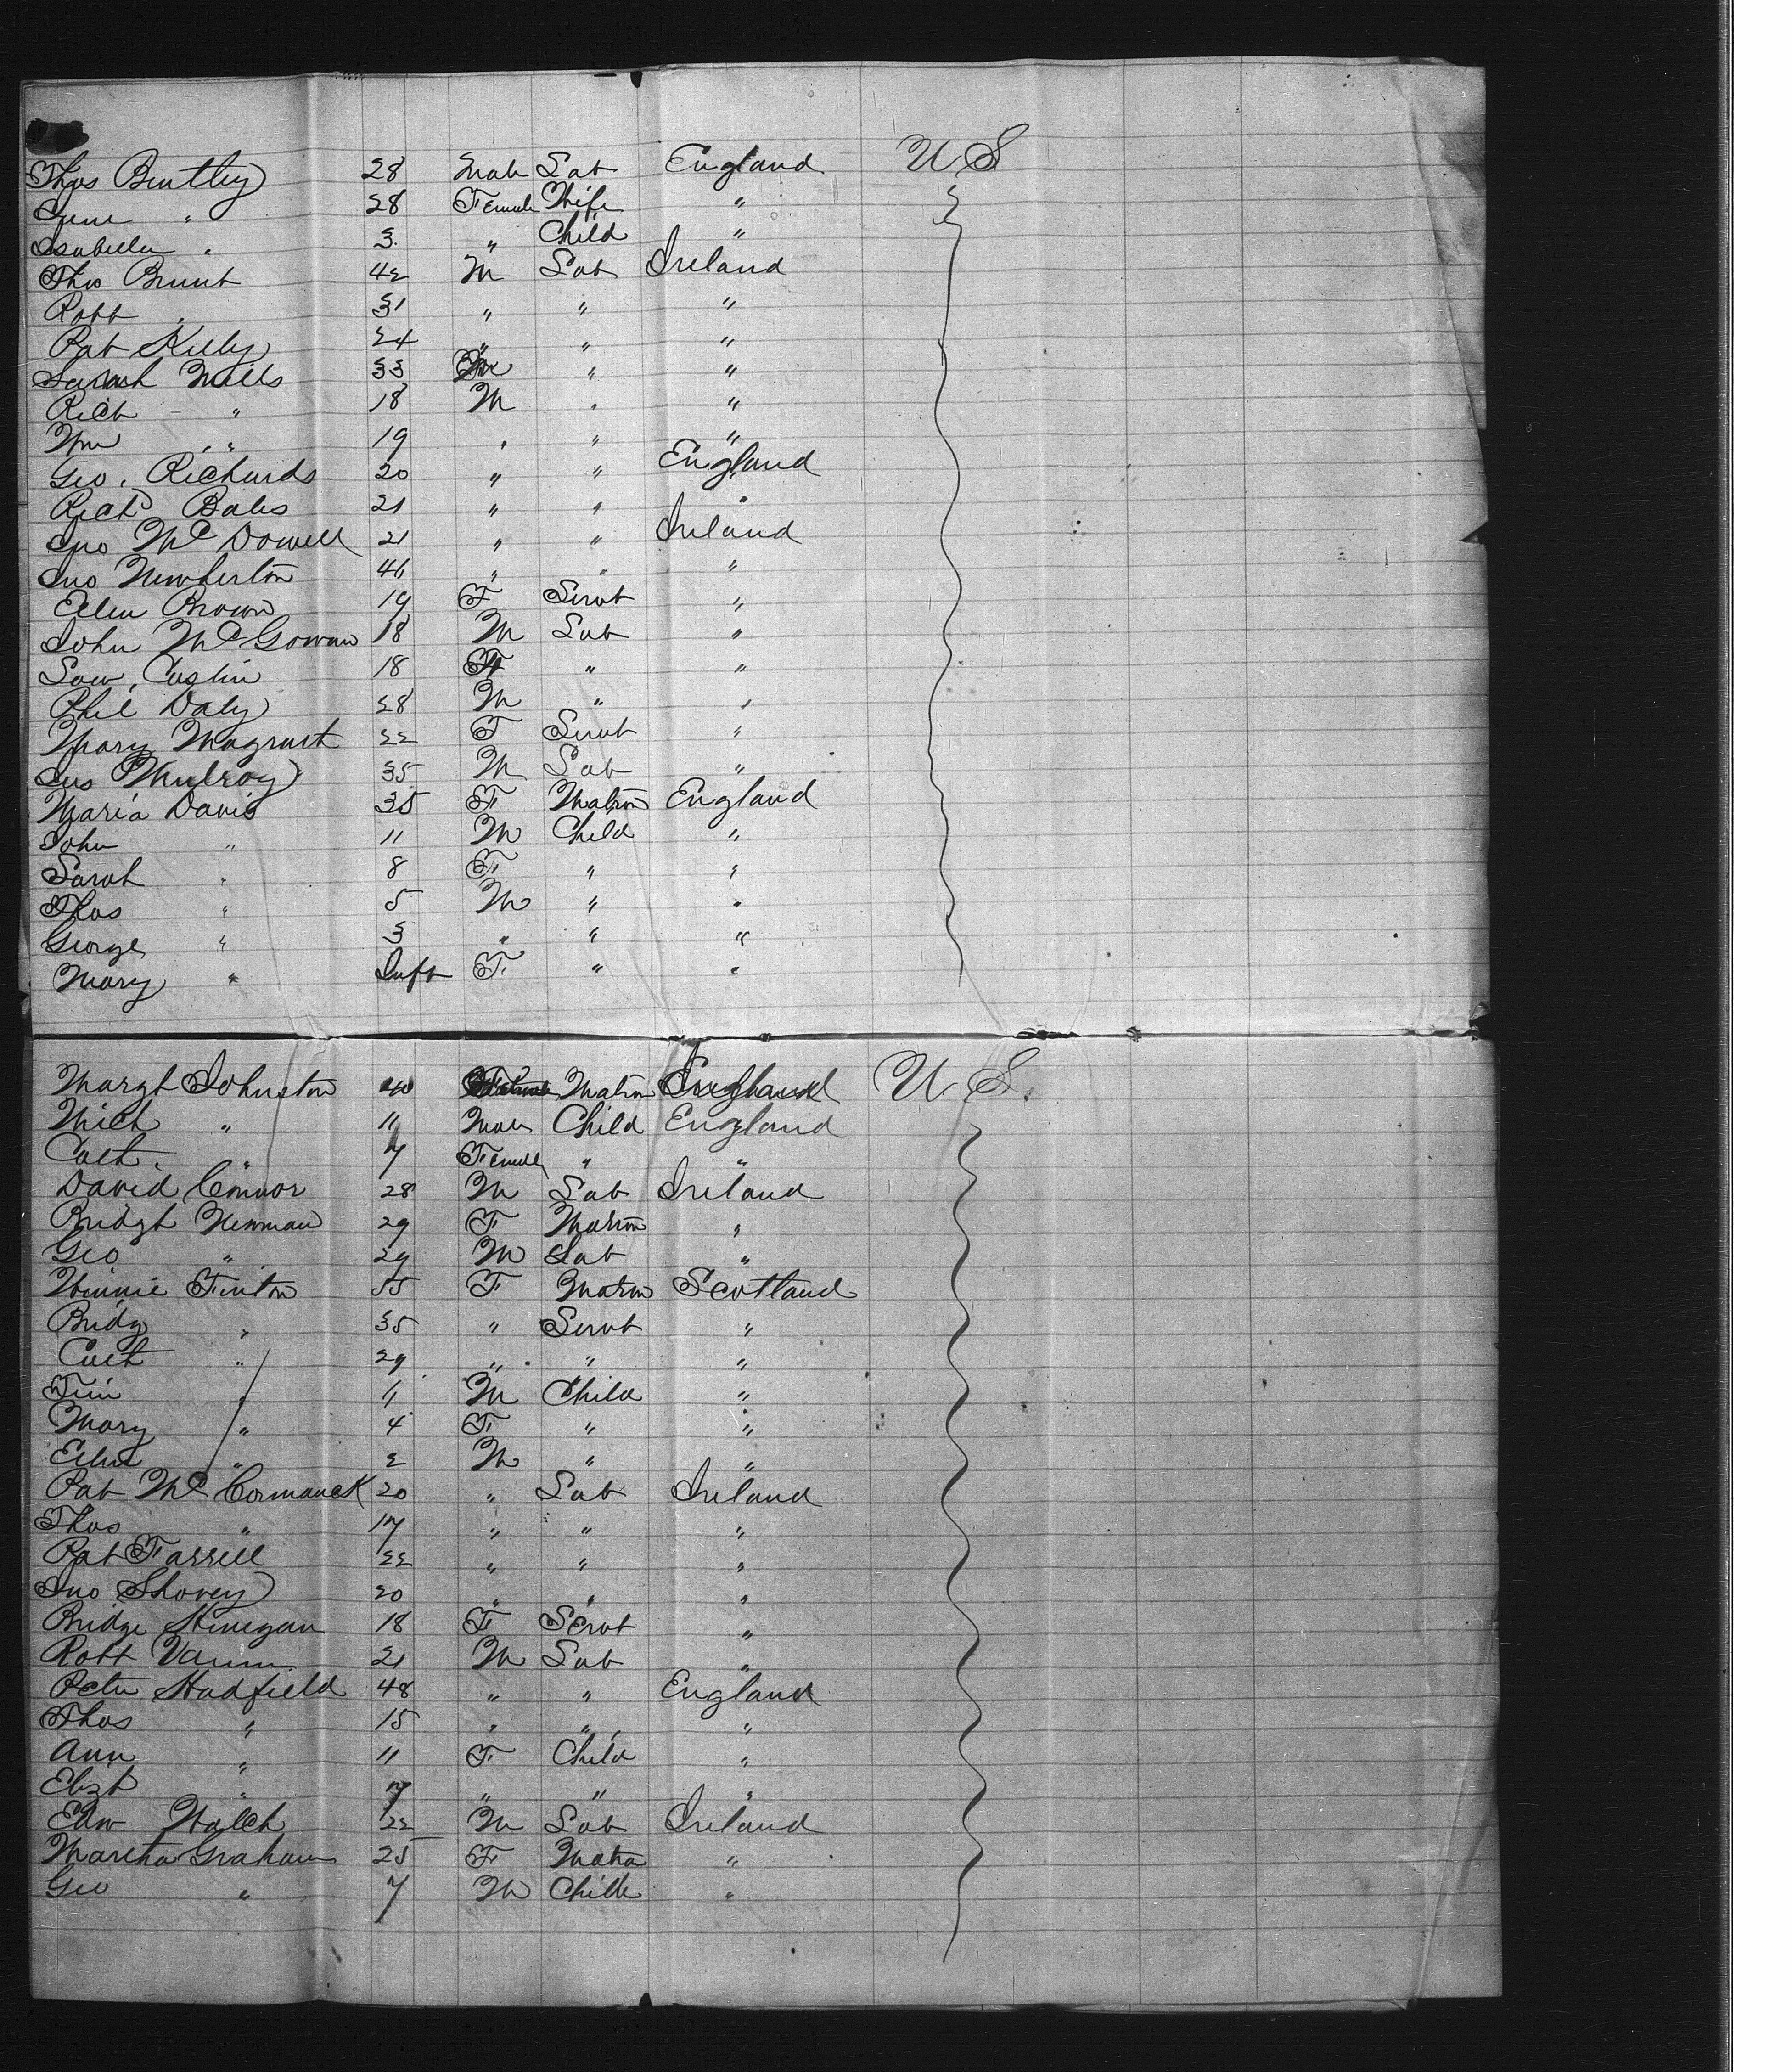 Thos Bentley 28 Male Lab England U S
Jane " 28 Female Wife "
Isabella " 3 " Child "
Thos Brunt 42 M Lab Ireland
Robt " 31 " " "
Pat Kelly 24 " " "
Sarah Mills 33 " "
Rich " 18 M " "
Wm " 19 " " "
Geo. Richards 20 " " England
Richd Bales 21 " " "
Jno McDowell 21 " " Ireland
Jno Newberton 46 " " "
Ellen Brown 19 F Servt "
John McGowan 18 M Lab "
Law. 18 " "
Phil Daly 28 M " "
Mary Magrart 22 F Servt "
Jas Mulroy 35 M Lab "
Maria Davis 35 F Matron England
John " 11 M Child "
Sarah " 8 F " "
Thos " 5 M " "
George " 3 " " "
Mary " Inft F " "
Margt Johnston 40 Matron England U S.
Mich " 11 Male Child England
Cath. " 7 Female " "
David Connor 28 M Lab Ireland
Bridgt Newman 29 F Matron "
Geo " 29 M Lab "
Winnie Finton 55 F Matron Scotland
Bridg " 35 " Servt "
Cath " 29 " " "
Tim " 11 M Child "
Mary " 4 F " "
" 2 M " "
Pat McCormack 20 " Lab Ireland
Thos " 17 " " "
Pat Farrell 22 " " "
Jno Shovey 20 " " "
Bridge Hinegan 18 F Servt "
Robt 21 M Lab "
Peter Hadfield 48 " " England
Thos " 15 " " "
Ann " 11 F Child "
Elizt " 7 " " "
Edw Walch 22 M Lab Ireland
Martha Graham 25 F Matrn "
Geo " 7 M Child "